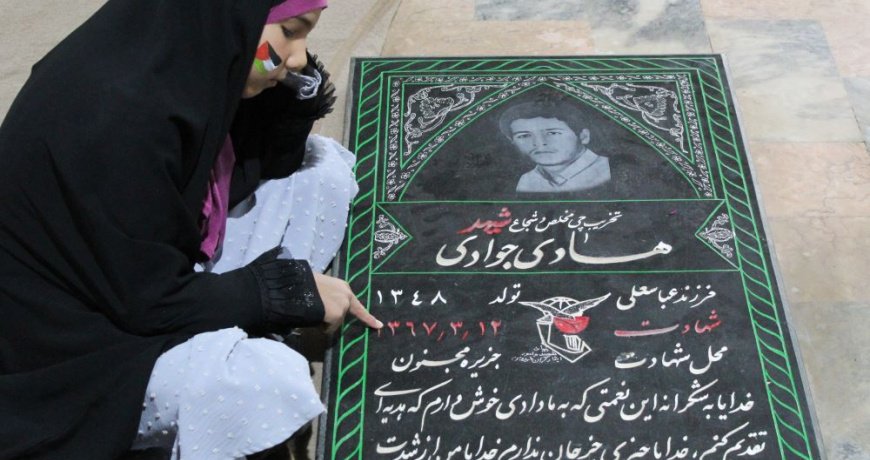 تخریب چی مخلص و شجاع شهید
هادی جوادی
فرزند عباسعلی تولد ۱۳۴۸
شهادت ۱۳۶۷٫۳٫۱۲
محل شهادت جزیره مجنون
خدایا به شکرانه این نعمتی که به ما دادی خوش دارم که هدیه ای
تقدیم کنم، خدایا چیزی جز جان ندارم خدایا من از